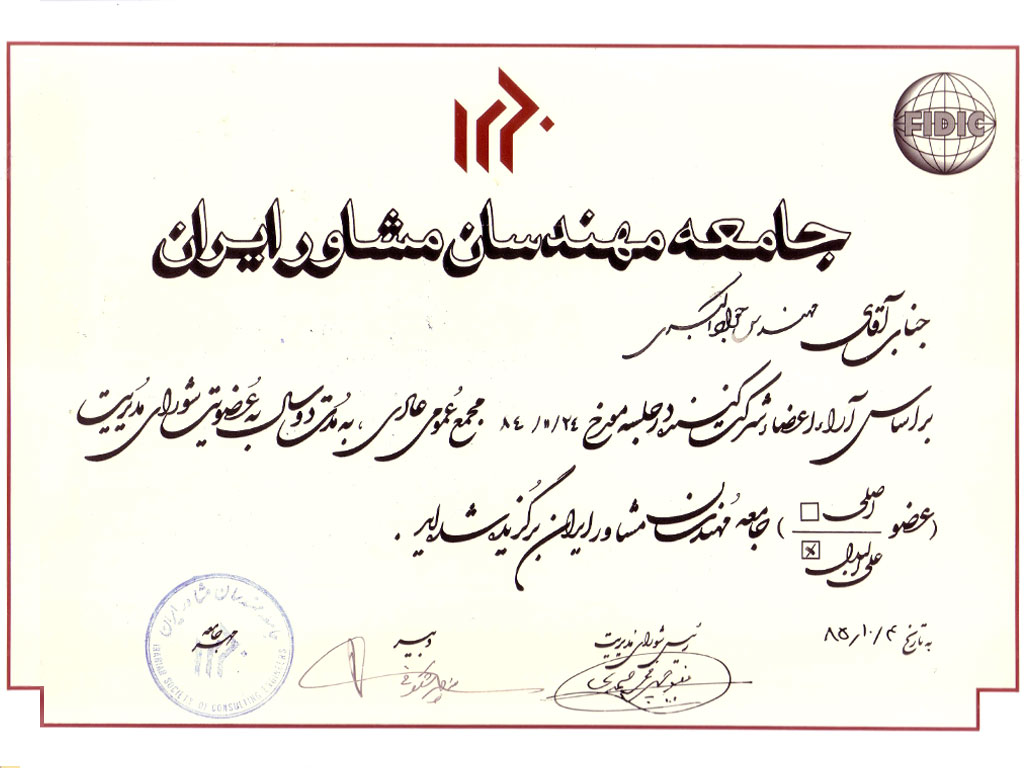 FIDIC
جامعه مهندسان مشاور ایران
جناب آقای مهندس جواد اکبری
براساس آراء اعضاء شرکت کننده در جلسه مورخ ۸۴/۱۱/۲۴ مجمع عمومی عادی ، به مدت دو سال به عضویت شورای مدیریت
(عضو اصلی □
علی البدل ☒) جامعه مهندسان مشاور ایران برگزیده شده اید .
به تاریخ ۸۵/۱۰/۴
رئیس شورای مدیریت
دبیر
مهر جامعه
جامعه مهندسان مشاور ایران
IRANIAN SOCIETY OF CONSULTING ENGINEERS